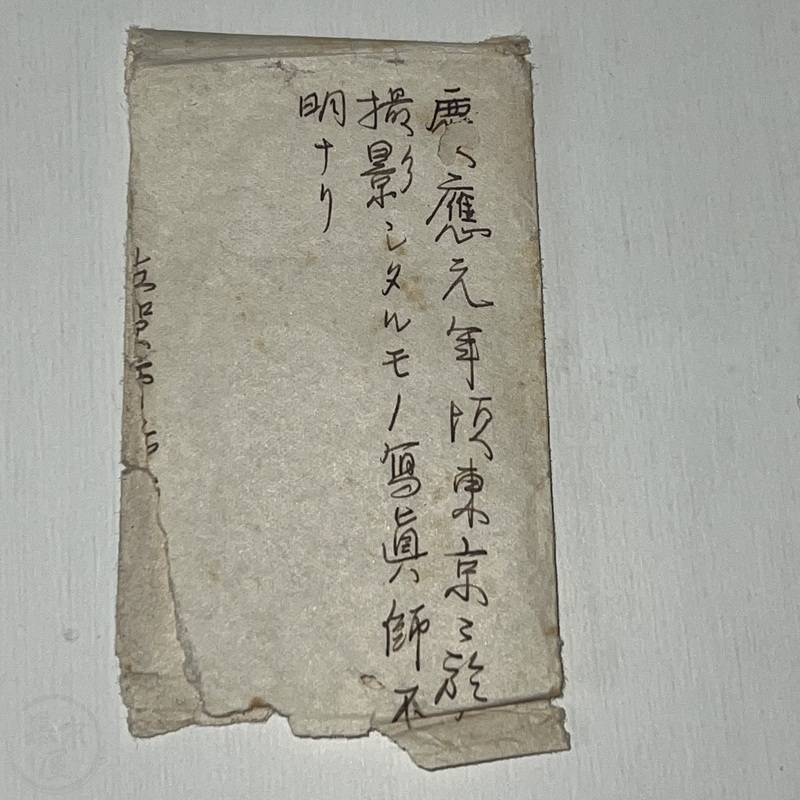 慶應元年頃東京ニ於
撮影シタルモノ寫眞師不
明ナリ